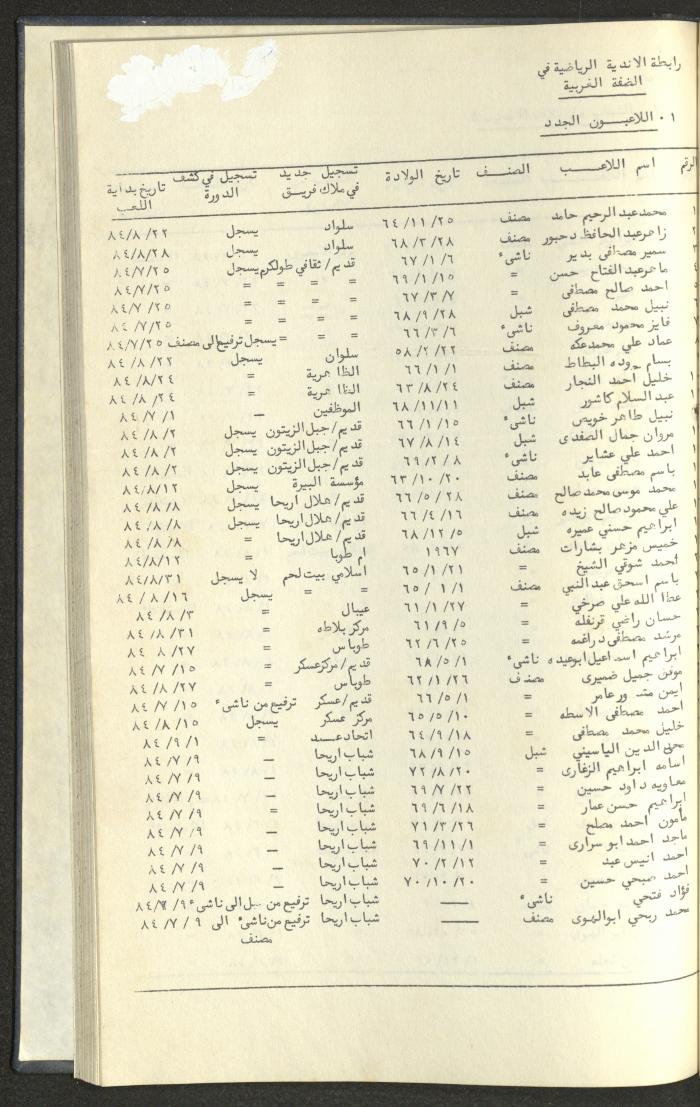 رابطة الاندية الرياضية في
الضفة الغربية
١٠ اللاعبون الجدد
الرقم اسم اللاعب الصنف تاريخ الولادة تسجيل جديد في ملاك فريق تسجيل في كشف الدورة تاريخ بداية اللعب
محمد عبد الرحيم حامد مصنف ٢٥/ ١١/ ٦٤ سلواد يسجل ٢٢/ ٨/ ٨٤
زاهر عبد الحافظ دحبور مصنف ٢٨/ ٣/ ٦٨ سلواد يسجل ٢٨/ ٨/ ٨٤
سمير مصطفى بدير ناشىء ٦/ ١/ ٦٧ قديم/ ثقافي طولكرم يسجل ٢٥/ ٧/ ٨٤
ماهر عبد الفتاح حسن = ١٥/ ١/ ٦٩ = = = = ٢٥/ ٧/ ٨٤
احمد صالح مصطفى = ٧/ ٣/ ٦٧ = = = = ٢٥/ ٧/ ٨٤
نبيل محمد مصطفى شبل ٢٨/ ٩/ ٦٨ = = = = ٢٥/ ٧/ ٨٤
فايز محمود معروف ناشىء ٦/ ٣/ ٦٦ = = = يسجل ترفيع الى مصنف ٢٥/ ٧/ ٨٤
عماد علي محمد عكه مصنف ٢٢/ ٢/ ٥٨ سلوان يسجل ٢٢/ ٨/ ٨٤
بسام جوده البطاط مصنف ١/ ١/ ٦٦ الظاهرية = ٢٤/ ٨/ ٨٤
خليل احمد النجار مصنف ٢٤/ ٨/ ٦٣ الظاهرية = ٢٤/ ٨/ ٨٤
عبد السلام كاشور شبل ١١/ ١١/ ٦٨ الموظفين — ١/ ٧/ ٨٤
نبيل طاهر خويص ناشىء ١٥/ ١/ ٦٦ قديم/ جبل الزيتون يسجل ٢/ ٨/ ٨٤
مروان جمال الصفدي شبل ١٤/ ٨/ ٦٧ قديم/ جبل الزيتون يسجل ٢/ ٨/ ٨٤
احمد علي عشاير ناشىء ٨/ ٢/ ٦٩ قديم/ جبل الزيتون يسجل ٢/ ٨/ ٨٤
باسم مصطفى عابد مصنف ٢٠/ ١٠/ ٦٣ مؤسسة البيرة يسجل ١٢/ ٨/ ٨٤
محمد موسى محمد صالح مصنف ٢٨/ ٥/ ٦٦ قديم/ هلال اريحا يسجل ٨/ ٨/ ٨٤
علي محمود صالح زيده مصنف ١٦/ ٤/ ٦٦ قديم/ هلال اريحا يسجل ٨/ ٨/ ٨٤
ابراهيم حسني عميره شبل ٥/ ١٢/ ٦٨ قديم/ هلال اريحا = ٨/ ٨/ ٨٤
خميس مزهر بشارات مصنف ١٩٦٧ ام طوبا = ١٢/ ٨/ ٨٤
احمد شوقي الشيخ = ٢١/ ١/ ٦٥ اسلامي بيت لحم لا يسجل ٣١/ ٨/ ٨٤
باسم اسحق عبد النبي مصنف ١/ ١/ ٦٥ = = يسجل ١٦/ ٨/ ٨٤
عطا الله علي صرخي = ٢٧/ ١/ ٦١ عيبال = ٣/ ٨/ ٨٤
حسان راضي قرنفله = ٥/ ٩/ ٦١ مركز بلاطه = ٣١/ ٨/ ٨٤
مرشد مصطفى دراغمه = ٢٥/ ٦/ ٦٢ طوباس = ٢٧/ ٨/ ٨٤
ابراهيم اسماعيل ابو عيده ناشىء ١/ ٥/ ٦٨ قديم/ مركز عسكر = ١٥/ ٧/ ٨٤
موفق جميل ضميري مصنف ٢٦/ ١/ ٦٢ طوباس = ٢٧/ ٨/ ٨٤
ايمن عامر = ١/ ٥/ ٦٦ قديم/ عسكر ترفيع من ناشىء ١٥/ ٧/ ٨٤
احمد مصطفى الاسطه = ١٠/ ٥/ ٦٥ مركز عسكر يسجل ١٥/ ٨/ ٨٤
خليل محمد مصطفى = ١٨/ ٩/ ٦٤ اتحاد = ١/ ٩/ ٨٤
محي الدين الياسيني شبل ١٥/ ٩/ ٦٨ شباب اريحا — ٩/ ٧/ ٨٤
اسامه ابراهيم الزغارى = ٢٠/ ٨/ ٧٢ شباب اريحا — ٩/ ٧/ ٨٤
معاويه داود حسين = ٢٢/ ٧/ ٦٩ شباب اريحا — ٩/ ٧/ ٨٤
ابراهيم حسن عمار = ١٨/ ٦/ ٦٩ شباب اريحا = ٩/ ٧/ ٨٤
مأمون احمد مصلح = ٢٦/ ٣/ ٧١ شباب اريحا — ٩/ ٧/ ٨٤
ماجد احمد ابو سرارى = ١/ ١١/ ٦٩ شباب اريحا — ٩/ ٧/ ٨٤
احمد انيس عبد = ١٢/ ٢/ ٧٠ شباب اريحا — ٩/ ٧/ ٨٤
احمد صبحي حسين = ٢٠/ ١٠/ ٧٠ شباب اريحا — ٩/ ٧/ ٨٤
فؤاد فتحي ناشىء —— شباب اريحا ترفيع من شبل الى ناشىء ٩/ ٧/ ٨٤
محمد ربحي ابو الهوى مصنف —— شباب اريحا ترفيع من ناشىء الى مصنف ٩/ ٧/ ٨٤